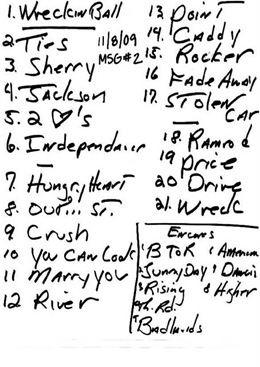 1. Wreckin Ball
2. Ties
11/8/09
MSG#2
3. Sherry
4. Jackson
5. 2 ♡'s
6. Independance
7. Hungry Heart
8. Out... St.
9 Crush
10 You Can Look
11 Marry You
12 River
13 Point
14. Caddy
15. Rocker
16 Fade Away
17. Stolen
Car
18. Ramrod
19 Price
20 Drive
21. Wreck
Encores
1 B T O R
2 Sunny Day
3 Rising
Th. Rd.
Badlands
8 Higher